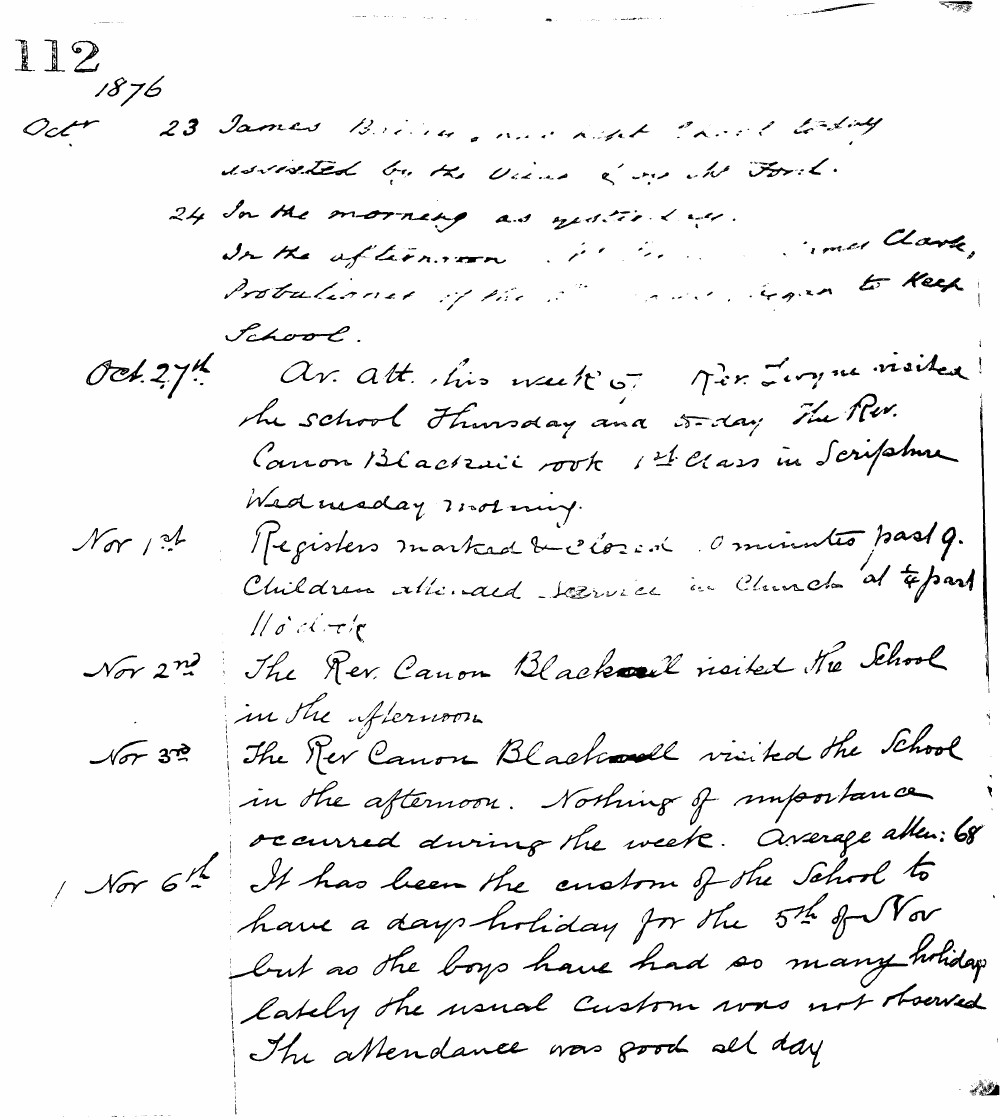 112
1876
Octr 23 James today
assisted by the & Ford.
24 In the morning as yesterday.
In the afternoon James Clark,
Probationer of the began to keep
School.
Oct. 27th Av. Att. this week Rev. visited
the school Thursday and to-day The Rev.
Canon Blackwell took 1st Class in Scripture
Wednesday morning.
Nov 1st Registers marked & closed minutes past 9.
Children attended service in Church at 1/4 past
11 o'clock
Nov 2nd The Rev. Canon Blackwell visited the School
in the afternoon
Nov 3rd The Rev Canon Blackwell visited the School
in the afternoon. Nothing of importance
occurred during the week. Average atten: 68
Nov 6th It has been the custom of the School to
have a days holiday for the 5th of Nov
but as the boys have had so many holidays
lately the usual custom was not observed
The attendance was good all day